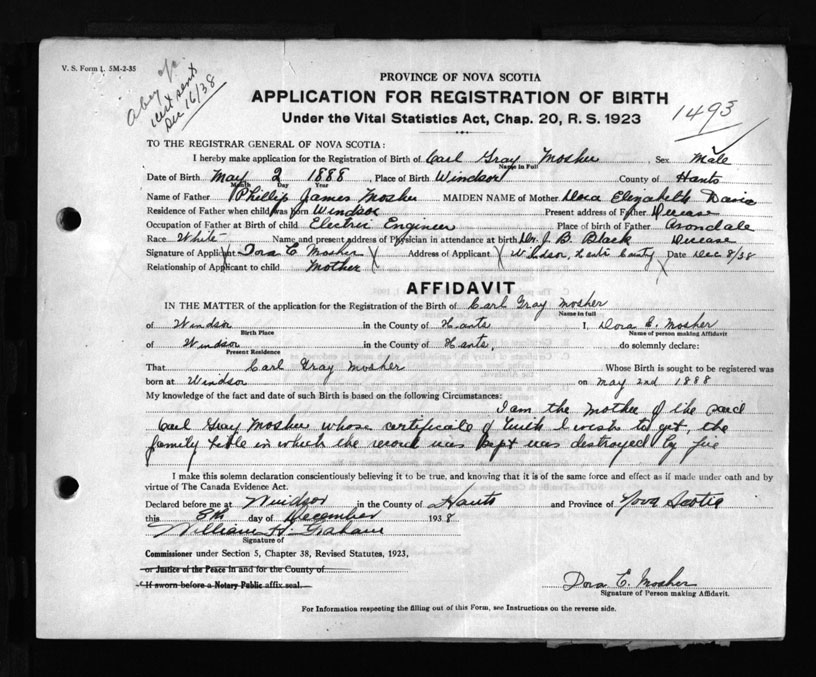 V. S. Form 1. 5M-2-35
cert sent
Dec 16/38
PROVINCE OF NOVA SCOTIA
APPLICATION FOR REGISTRATION OF BIRTH
1493
Under the Vital Statistics Act, Chap. 20, R. S. 1923
TO THE REGISTRAR GENERAL OF NOVA SCOTIA:
I hereby make application for the Registration of Birth of Carl Gray Mosher Sex Male
Name in Full
Date of Birth May 2 1888 Place of Birth Windsor County of Hants
Month Day Year
Name of Father Phillip James Mosher MAIDEN NAME of Mother Dora Elizabeth Davis
Residence of Father when child was born Windsor Present address of Father Decease
Occupation of Father at Birth of child Electric Engineer Place of birth of Father Avondale
Race White Name and present address of Physician in attendance at birth Dr. J. B. Black Decease
Signature of Applicant Dora E Mosher Address of Applicant Windsor, Hants County Date Dec 8/38
Relationship of Applicant to child Mother
AFFIDAVIT
IN THE MATTER of the application for the Registration of the Birth of Carl Gray Mosher
Name in full
of Windsor in the County of Hants I, Dora E. Mosher
Birth Place Name of person making Affidavit
of Windsor in the County of Hants, do solemnly declare:
Present Residence
That Carl Gray Mosher Whose Birth is sought to be registered was
born at Windsor on May 2nd 1888
My knowledge of the fact and date of such Birth is based on the following Circumstances:
I am the Mother of the said
Carl Gray Mosher whose certificate of birth I wish to get, the
family bible in which the record was kept was destroyed by fire
I make this solemn declaration conscientiously believing it to be true, and knowing that it is of the same force and effect as if made under oath and by
virtue of The Canada Evidence Act.
Declared before me at Windsor in the County of Hants and Province of Nova Scotia
this 8th day of December 1938
William H. Graham
Signature of
Commissioner under Section 5, Chapter 38, Revised Statutes, 1923,
or Justice of the Peace in and for the County of
*If sworn before a Notary Public affix seal.
Dora E. Mosher
Signature of Person making Affidavit.
For Information respecting the filling out of this Form, see Instructions on the reverse side.